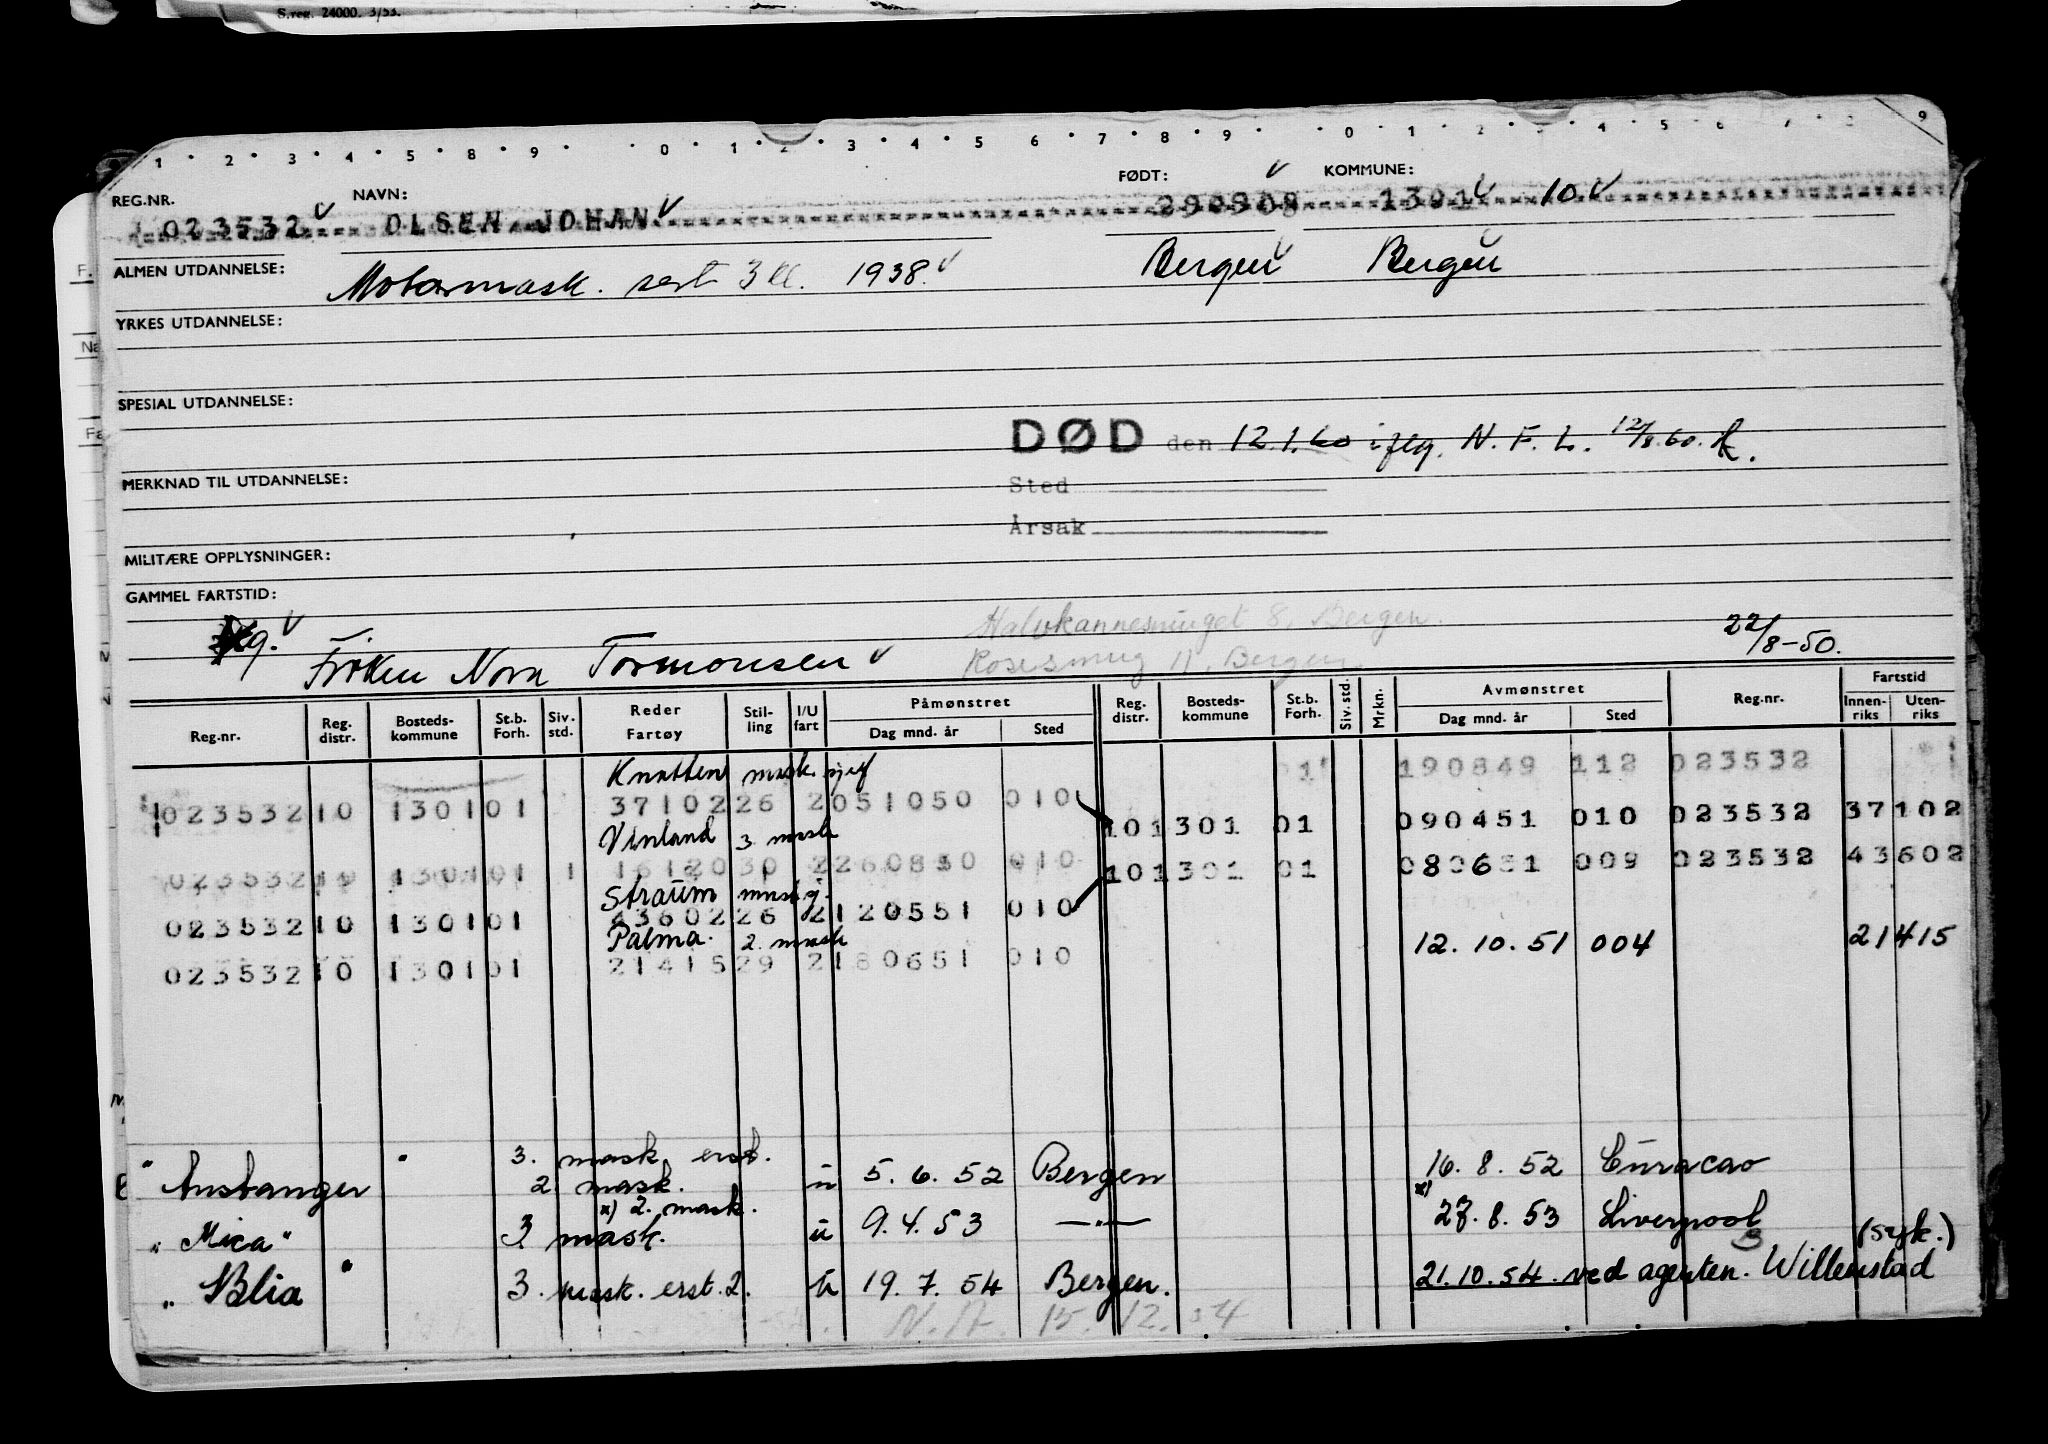 S.reg. 24000. 3/53.
1 2 3 4 5 8 9 0 1 2 3 4 5 6 7 8 9 0 1 2 3 4 5 6 7 8 9
REG.NR. NAVN: FØDT: KOMMUNE:
023532 OLSEN JOHAN 290908 1301 10
ALMEN UTDANNELSE: Motormask. sert 3 kl. 1938. Bergen Bergen
YRKES UTDANNELSE:
SPESIAL UTDANNELSE:
DØD den 12.1.60 iflg. N. F. L. 12/8.60.
MERKNAD TIL UTDANNELSE: Sted
Årsak
MILITÆRE OPPLYSNINGER:
GAMMEL FARTSTID:
Halvkannesmuget 8, Bergen.
Fröken Nora Tormonsen Rosesmug 11, Bergen. 22/8-50.
Reg.nr. Reg. distr. Bosteds-kommune St.b. Forh. Siv. std. Reder Fartøy Stil-ling I/U fart Påmønstret Dag mnd. år Sted Reg. distr. Bosteds-kommune St.b. Forh. Siv. std. Mrkn. Avmønstret Dag mnd. år Sted Reg.nr. Fartstid Innen-riks Uten-riks
Knatten mask. 190849 112 023532
023532 10 1301 01 37102 26 2 051050 010 10 1301 01 090451 010 023532 37102
Vinland 3 mask
023532 10 1301 01 1 16120 30 2 260850 010 10 1301 01 080651 009 023532 43602
Straum
023532 10 1301 01 43602 26 2 120551 010
Palma. 2. mask 12. 10. 51 004 21415
023532 10 1301 01 21415 29 2 180651 010
3. mask. erst.
" Austanger " 2. mask. u 5. 6. 52 Bergen 16. 8. 52 Curacao
x) 2. mask. x)
" Mica" 3 mask. u 9.4.53 —"— 27. 8. 53 Liverpool (syk.)
" Blia " 3. mask. erst. 2. u 19. 7. 54 Bergen. 21.10.54. ved agenten. Willenstad
N.A. 15. 12. 54